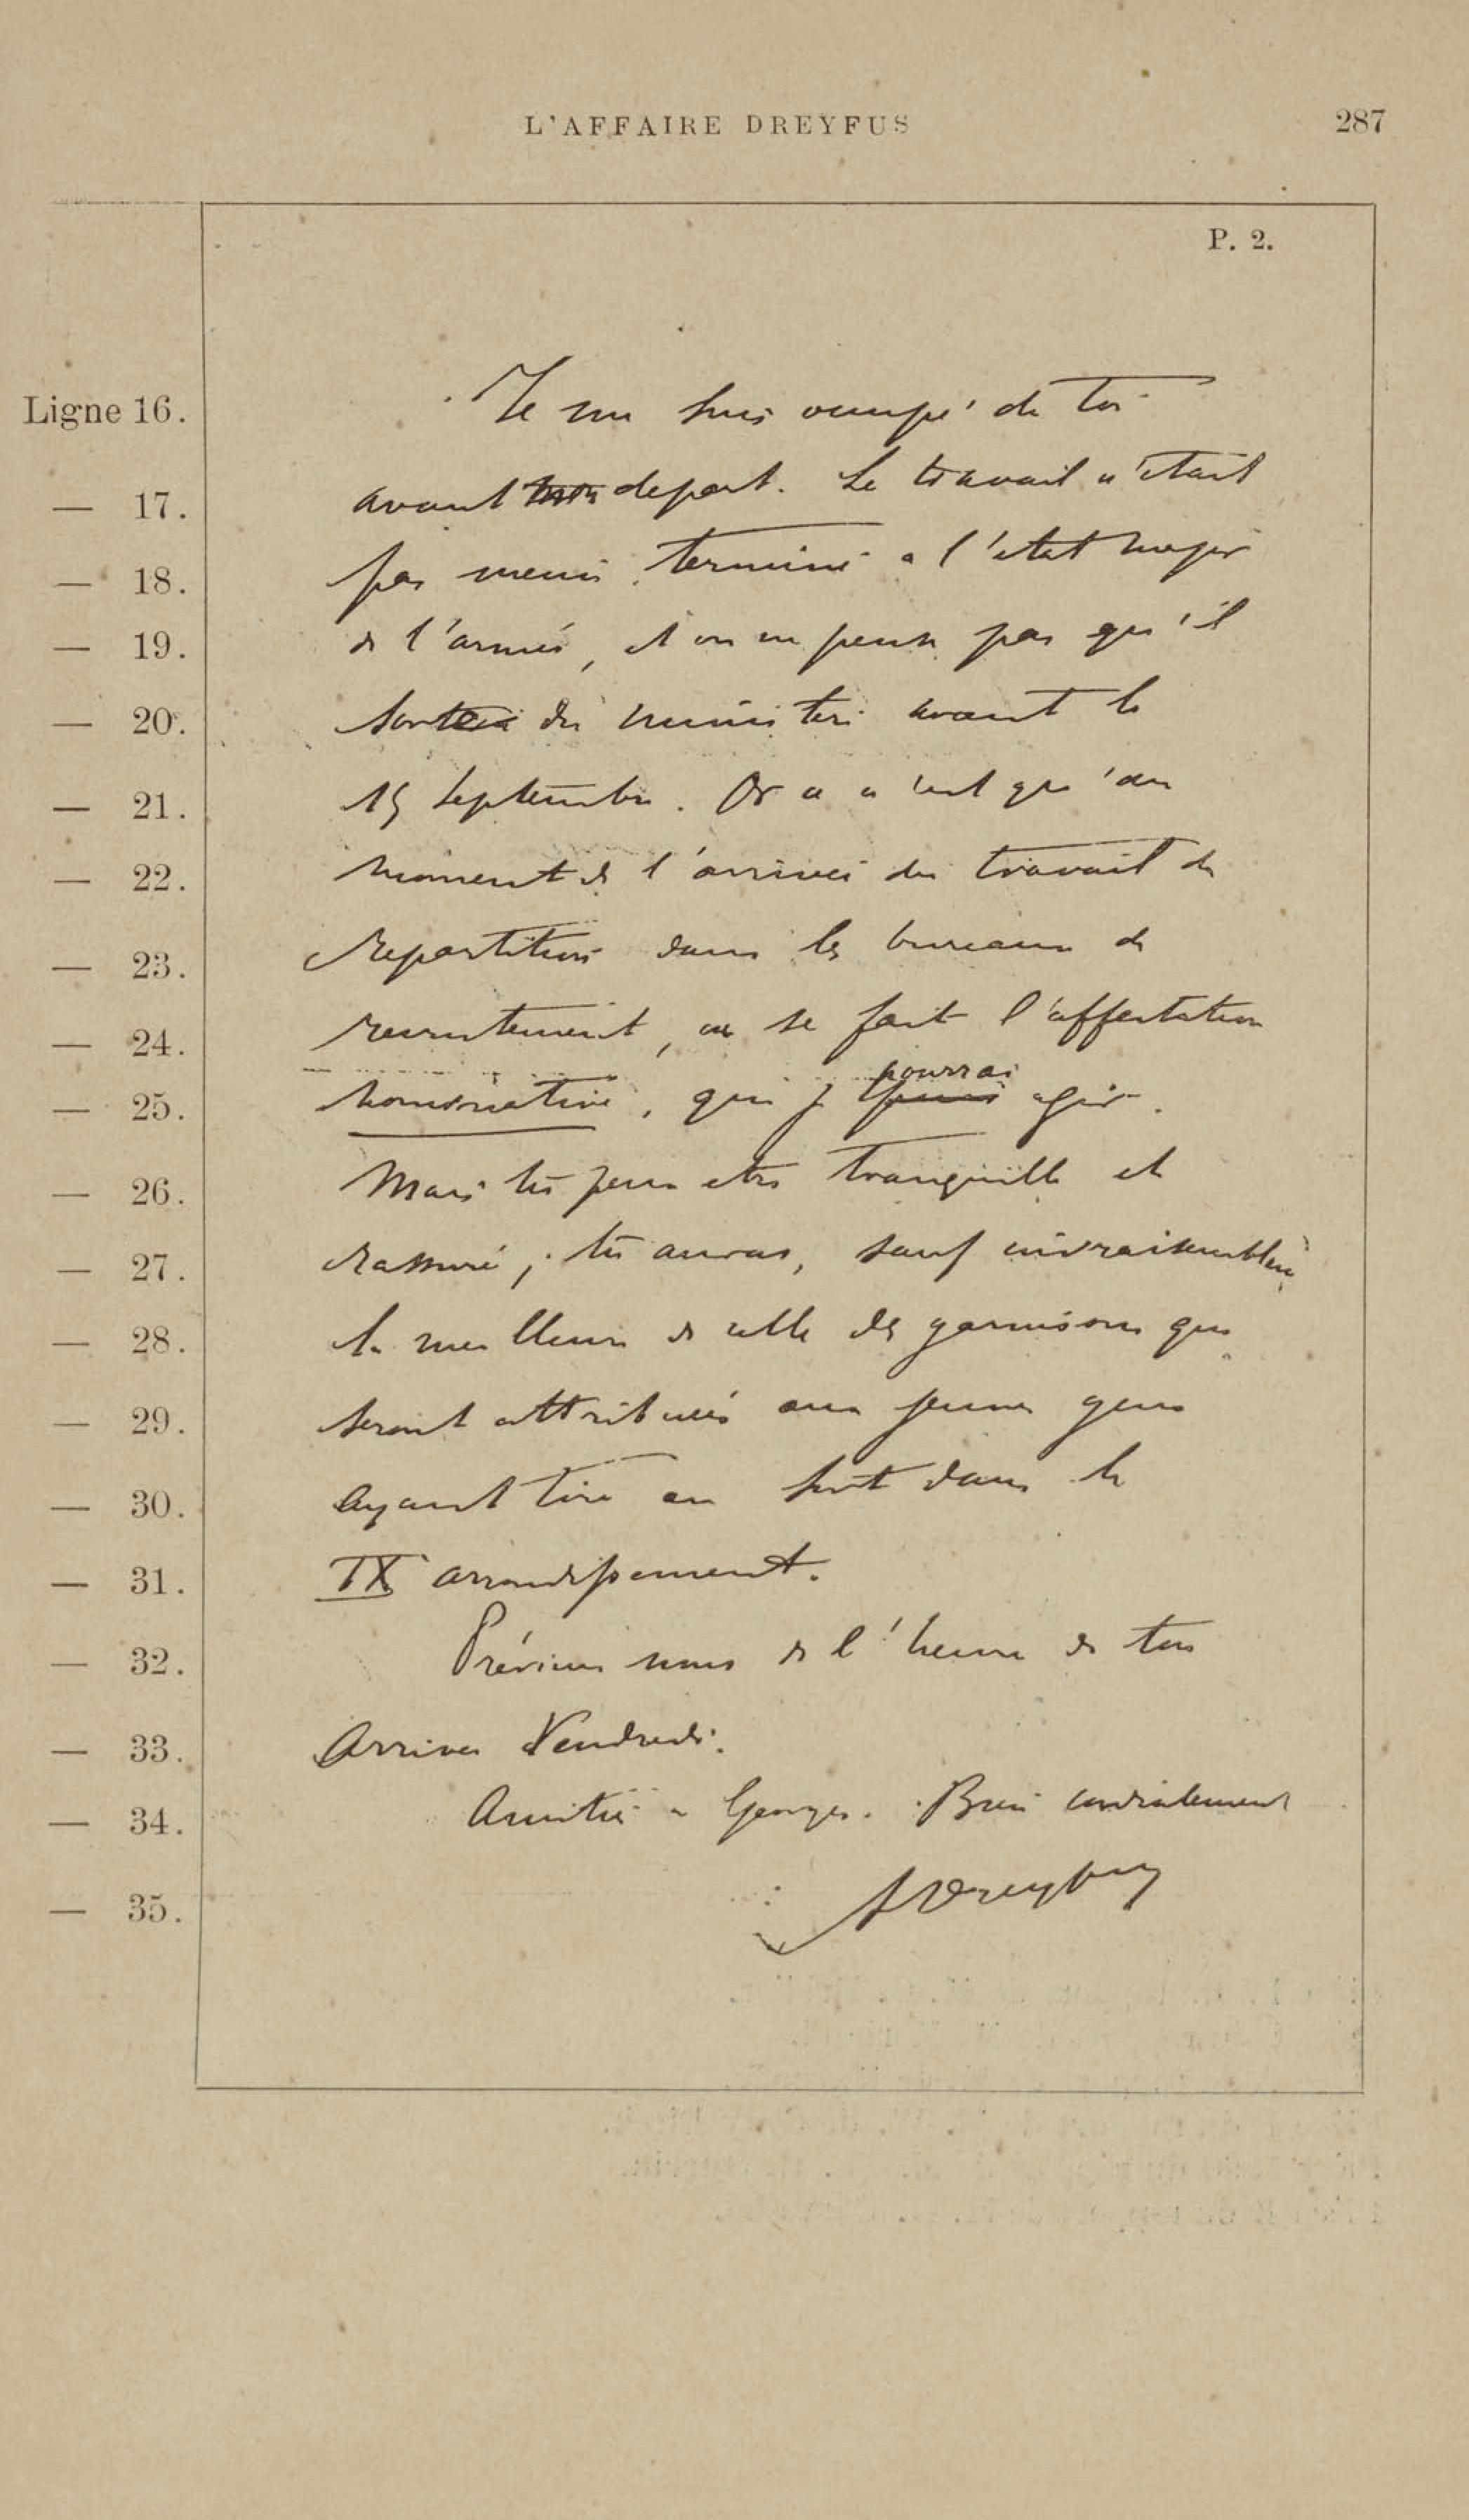 L'AFFAIRE DREYFUS 287
P. 2.
Ligne 16. Je me suis occupé de toi
— 17. avant mon depart. Le travail n'était
— 18. pas meme terminé a l'etat major
— 19. de l'armée, et on ne pense pas qu'il
— 20. sorte du ministere avant le
— 21. 15 Septembre. Or ce n'est qu'au
— 22. moment de l'arrivée du travail de
— 23. repartition dans les bureaux de
— 24. recrutement, ou se fait l'affectation
— 25. nominative, que je pourrai agir.
— 26. Mais tu peux etre tranquille et
— 27. rassuré; tu auras, sauf invraisemblance
— 28. la meilleure de celle des garnisons qui
— 29. seront attribuées aux jeunes gens
— 30. ayant tiré au sort dans le
— 31. IX arrondissement.
— 32. Préviens nous de l'heure de ton
— 33. arrivée Vendredi.
— 34. Amitiés a Georges. Bien cordialement
— 35. A Dreyfus